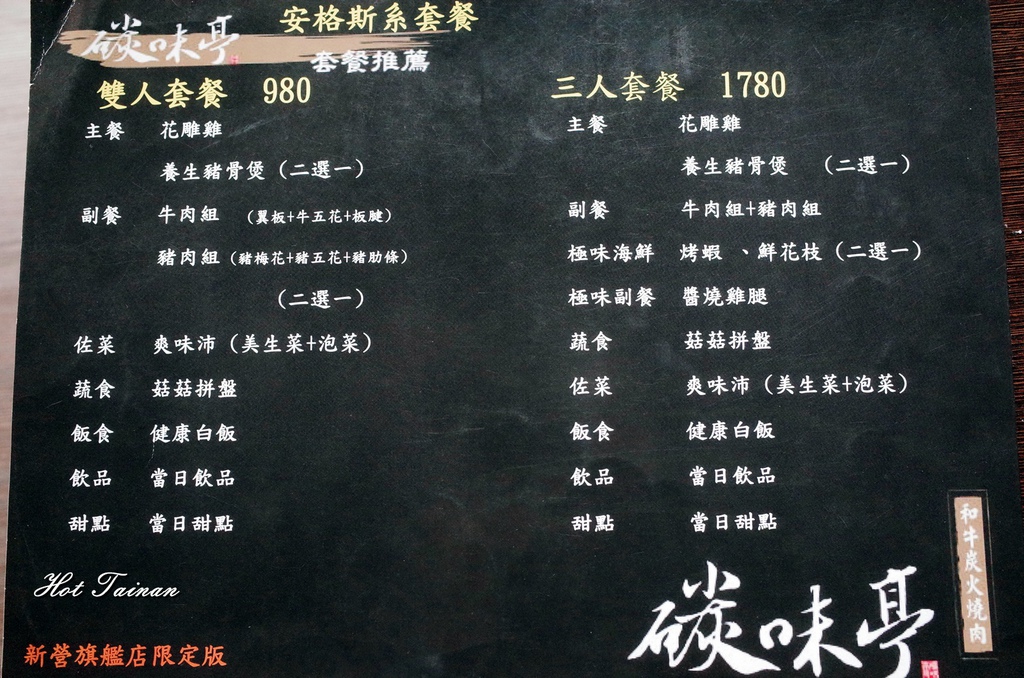 碳味亭
安格斯系套餐
套餐推薦
雙人套餐 980
主餐 花雕雞
養生豬骨煲（二選一）
副餐 牛肉組 （翼板+牛五花+板腱）
豬肉組（豬梅花+豬五花+豬肋條）
（二選一）
佐菜 爽味沛（美生菜+泡菜）
蔬食 菇菇拼盤
飯食 健康白飯
飲品 當日飲品
甜點 當日甜點
三人套餐 1780
主餐 花雕雞
養生豬骨煲 （二選一）
副餐 牛肉組+豬肉組
極味海鮮 烤蝦 、鮮花枝（二選一）
極味副餐 醬燒雞腿
蔬食 菇菇拼盤
佐菜 爽味沛（美生菜+泡菜）
飯食 健康白飯
飲品 當日飲品
甜點 當日甜點
Hot Tainan
新營旗艦店限定版
碳味亭
和牛炭火燒肉